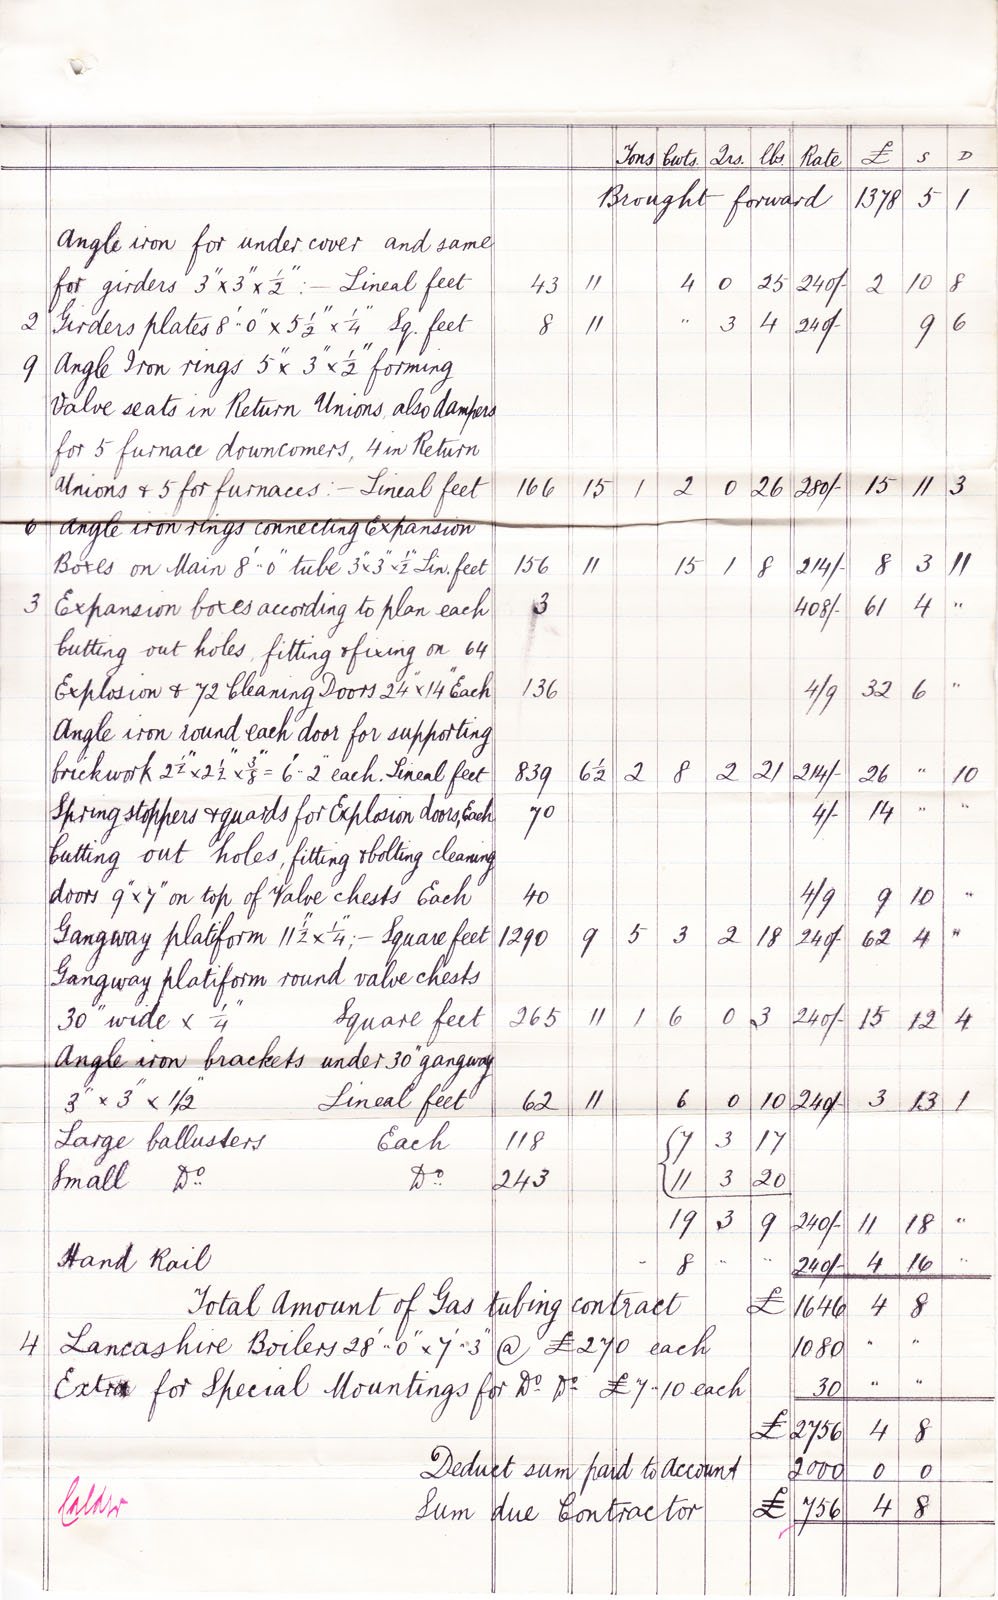 Tons Cwts. Qrs. lbs Rate £ s D
Brought forward 1378 5 1
Angle iron for under cover and same
for girders 3" x 3" x ½" :- Lineal feet 43 11 4 0 25 240/- 2 10 8
2 Girders plates 8'-0" x 5½" x ¼" Sq. feet 8 11 " 3 4 240/- 9 6
9 Angle Iron rings 5" x 3" x ½" forming
Valve seats in Return Unions, also dampers
for 5 furnace downcomers, 4 in Return
Unions & 5 for furnaces :- Lineal feet 166 15 1 2 0 26 280/- 15 11 3
6 Angle iron rings connecting Expansion
Boxes on Main 8'-0" tube 3" x 3" x ½" Lin. feet 156 11 15 1 8 214/- 8 3 11
3 Expansion boxes according to plan each 3 408/- 61 4 "
Cutting out holes, fitting & fixing on 64
Explosion & 72 Cleaning Doors 24" x 14" Each 136 4/9 32 6 "
Angle iron round each door for supporting
brickwork 2½" x 2½" x ⅜" = 6'-2" each. Lineal feet 839 6½ 2 8 2 21 214/- 26 " 10
Spring stoppers & guards for Explosion doors, Each 70 4/- 14 " "
Cutting out holes, fitting & bolting cleaning
doors 9" x 7" on top of Valve chests Each 40 4/9 9 10 "
Gangway platiform 11½" x ¼" :- Square feet 1290 9 5 3 2 18 240/- 62 4 "
Gangway platiform round valve chests
30" wide x ¼" Square feet 265 11 1 6 0 3 240/- 15 12 4
Angle iron brackets under 30" gangway
3" x 3" x 1/2" Lineal feet 62 11 6 0 10 240/- 3 13 1
Large ballusters Each 118 7 3 17
Small Do. Do. 243 11 3 20
19 3 9 240/- 11 18 "
Hand Rail - 8 " " 240/- 4 16 "
Total Amount of Gas tubing contract £ 1646 4 8
4 Lancashire Boilers 28'-0" x 7'-3" @ £270 each 1080 " "
Extra for Special Mountings for Do. Do. £7-10 each 30 " "
£ 2756 4 8
Deduct sum paid to Account 2000 0 0
Calder Sum due Contractor £ 756 4 8